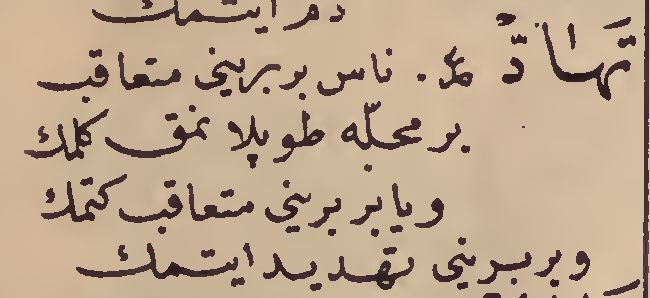 دم ايتمك
تَهَادّ مع. ناس بربرينى متعاقب
بر محلّه طوپلانمق كلمك
ويا بربرينى متعاقب كتمك
وبربرينى تهديد ايتمك